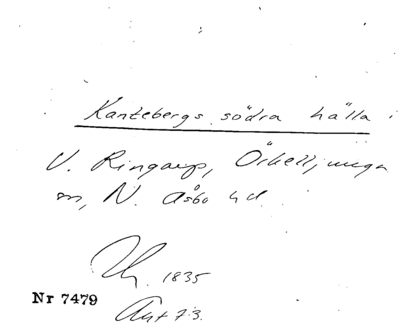 Kantebergs södra hälla
V. Ringarp, Örkelljunga
sn, N. Åsbo hd.
1835
Nr 7479